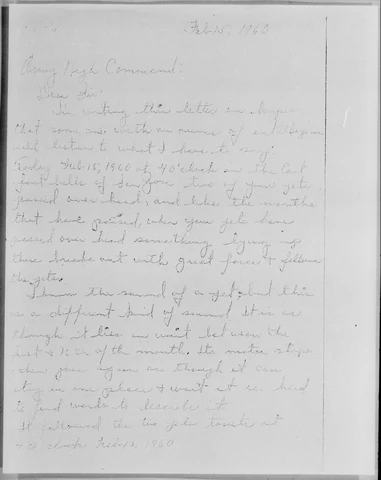 Feb 15, 1960
Army High Command:
Dear Sir:
In writing this letter in hopes
that some one with an ounce of intelligence
will listen to what I have to say.
Today Feb 15, 1960 at 4 o'clock on the East
foot hills of San Jose two of your jets
passed over head, and like the months
that have passed, when your jets have
passed over head something lying up
there breaks out with great force & follows
the jets.
I know the sound of a jet, but this
is a different kind of sound. It is as
though it lies in wait between the
1st & 15th of the month. Its motor stops
when you again as though it can
stay in one place & wait it is hard
to find words to describe it.
It followed the two jets tonite at
4 o'clock Feb 15, 1960